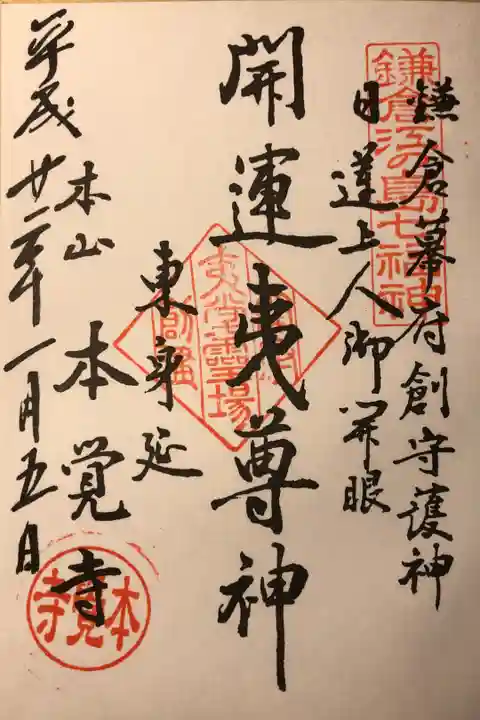 鎌倉江の島七福神
鎌倉幕府創守護神
日蓮上人御開眼
開運夷尊神
夷堂霊場
東身延
本山 本覚寺
本覚寺
平成廿二年一月五日